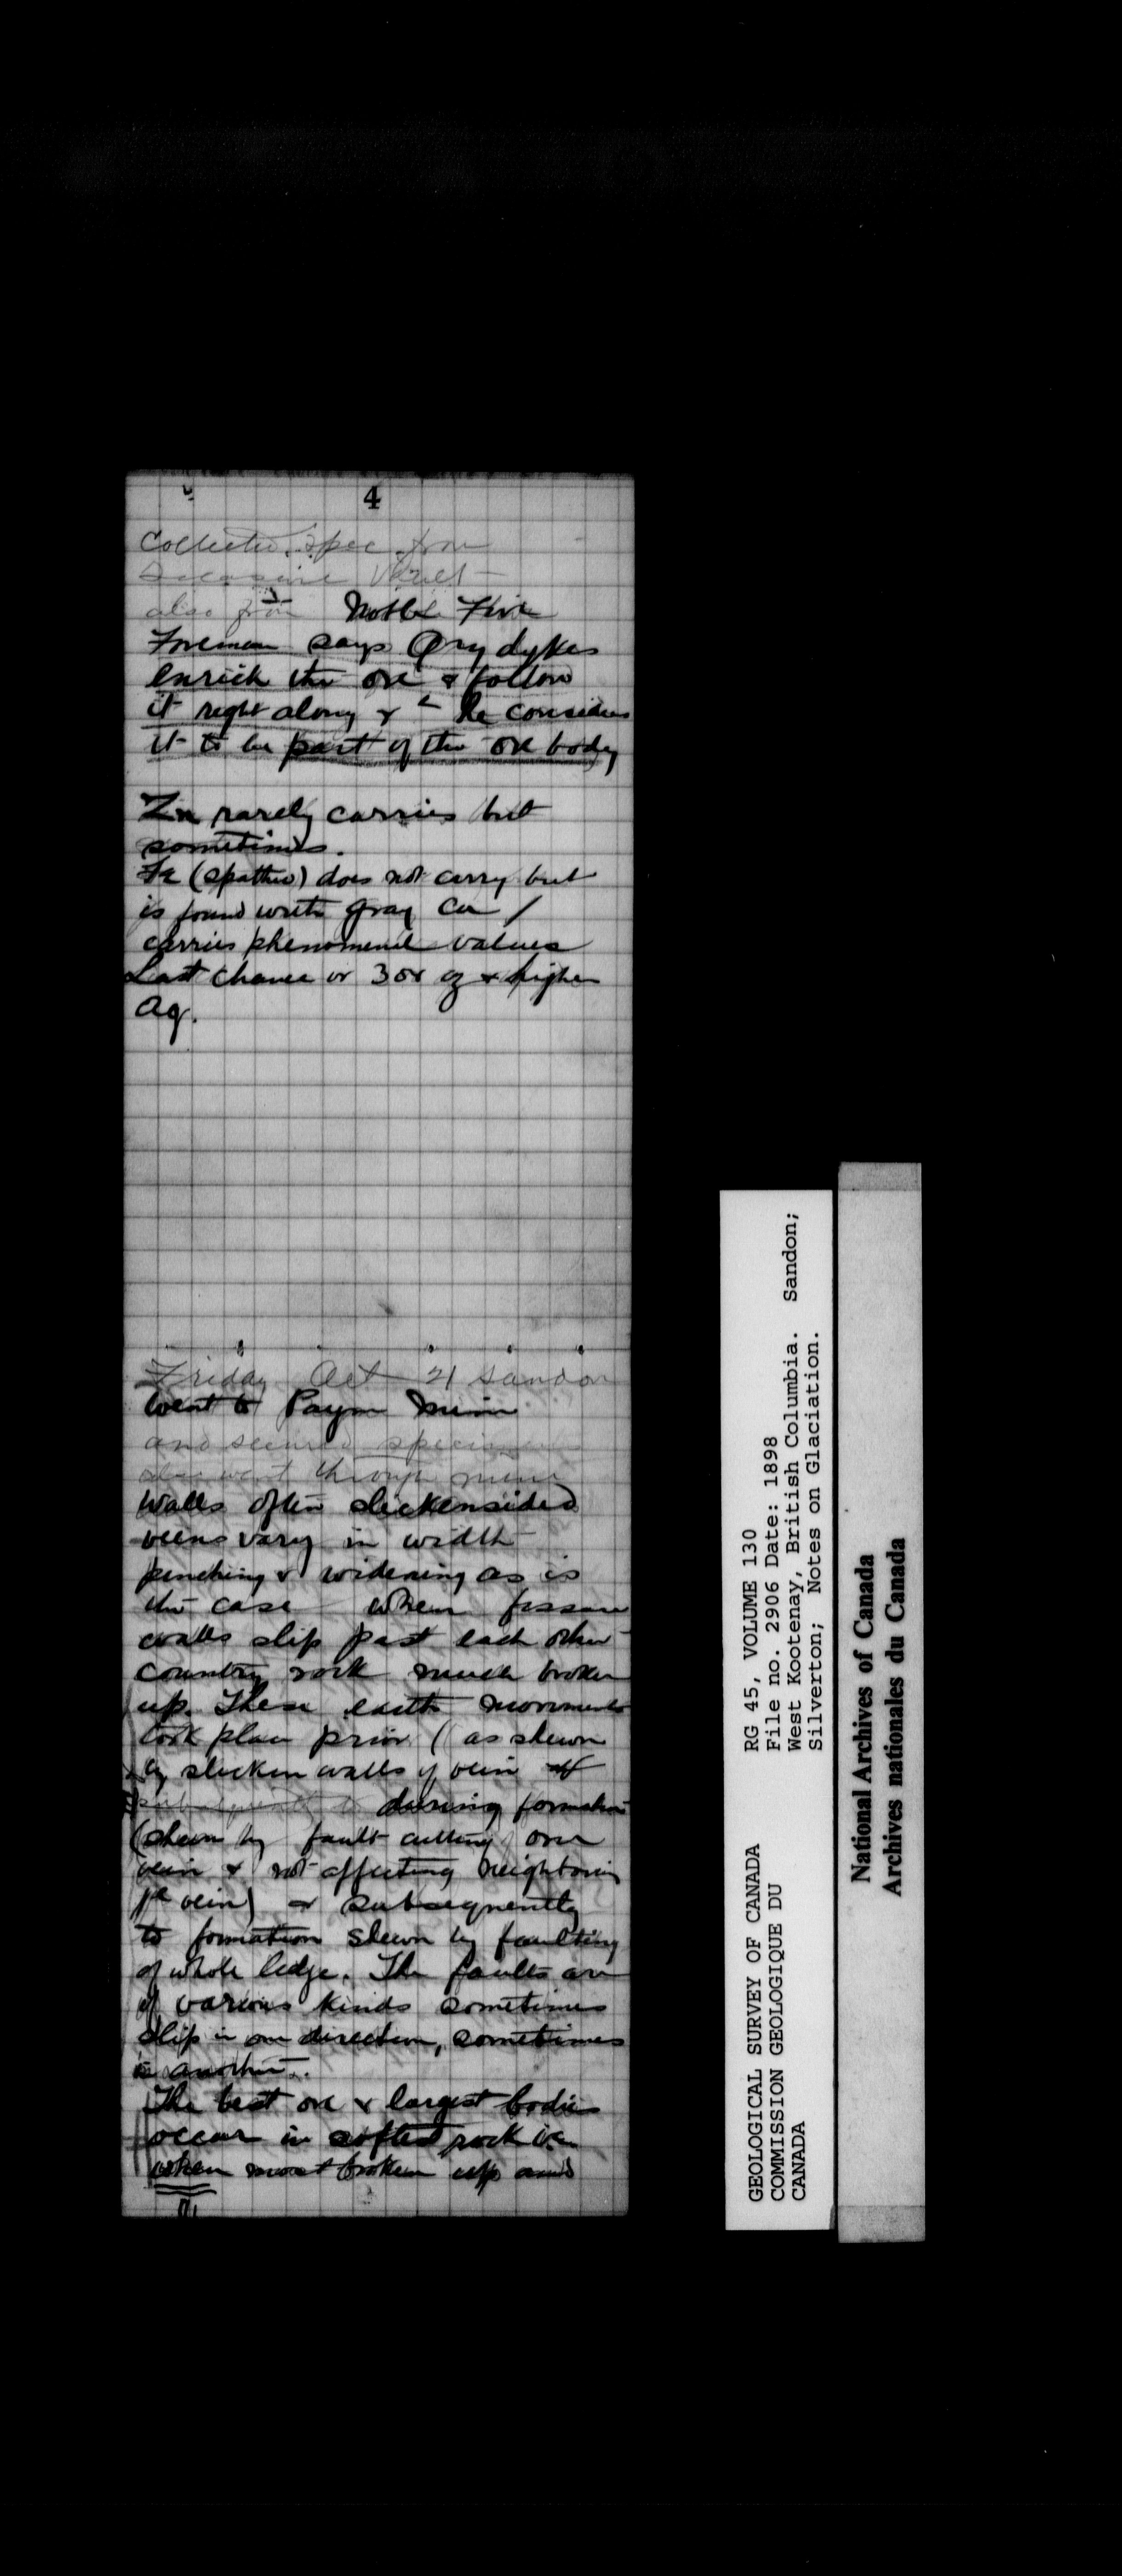 4
Collected spec from
also from Noble Five
Foreman says Qry dykes
enrich the ore & follow
it right along & he considers
it to be part of the ore body
Zn rarely carries but
sometimes.
Fe (spathic) does not carry but
is found with gray Cu /
carries phenomenal values
Last Chance or 300 oz & higher
Ag.
Friday Oct 21 Sandon
Went to Payne Mine
and secured specimens
also went through mine
Walls often slickensided
veins vary in width
pinching & widening as is
the case when fissure
walls slip past each other
country rock much broken
up. These earth movements
took place prior (as shewn
by slicken walls of vein
subsequently to during formation
(shewn by fault cutting one
vein & not affecting neighboring
vein) & subsequently
to formation shewn by faulting
of whole ledge. The faults are
of various kinds sometimes
slip in one direction, sometimes
in another.
The best ore & largest bodies
occur in softest rock ie.
when most broken up and
GEOLOGICAL SURVEY OF CANADA
COMMISSION GEOLOGIQUE DU
CANADA
RG 45, VOLUME 130
File no. 2906 Date: 1898
West Kootenay, British Columbia. Sandon;
Silverton; Notes on Glaciation.
National Archives of Canada
Archives nationales du Canada